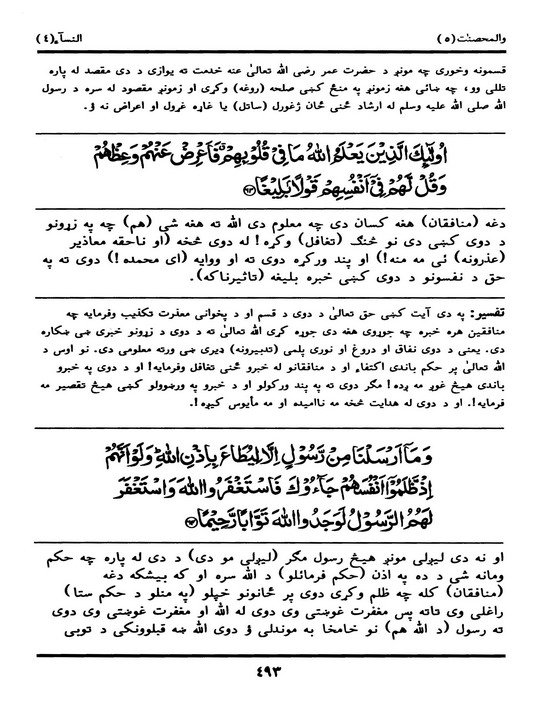 والمحصنت(٥) النسآء(٤)
قسمونه وخوری چه مونږ د حضرت عمر رضی الله تعالیٰ عنه خدمت ته یوازی د دی مقصد له پاره
تللی وو، چه ښائی هغه زمونږ په منځ کښی صلحه (روغه) وکړی او زمونږ مقصود له سره د رسول
الله صلی الله علیه وسلم له ارشاد څنی ځان ژغورل (ساتل) یا غاړه غړول او اعراض نه ؤ.
اُولٰٓئِكَ الَّذِيْنَ يَعْلَمُ اللّٰهُ مَا فِيْ قُلُوْبِهِمْ فَاَعْرِضْ عَنْهُمْ وَعِظْهُمْ
وَقُلْ لَّهُمْ فِيْٓ اَنْفُسِهِمْ قَوْلًا بَلِيْغًا ﴿٦٣﴾
دغه (منافقان) هغه کسان دی چه معلوم دی الله ته هغه شی (هم) چه په زړونو
د دوی کښی دی نو څنګ (تغافل) وکړه! له دوی څخه (او ناحقه معاذیر
(عذرونه) ئی مه منه!) او پند ورکړه دوی ته او ووایه (ای محمده!) دوی ته په
حق د نفسونو د دوی کښی خبره بلیغه (تاثیرناکه).
تفسیر: په دی آیت کښی حق تعالیٰ د دوی د قسم او د پخوانی معذرت تکذیب وفرمایه چه
منافقین هره خبره چه جوړوی هغه دی جوړه کړی الله تعالیٰ ته د دوی د زړونو خبری ښی ښکاره
دی. یعنی د دوی نفاق او دروغ او نوری پلمی (تدبیرونه) ډیری ښی ورته معلومی دی. نو اوس د
الله تعالیٰ پر حکم باندی اکتفاء او د منافقانو له خبرو څنی تغافل وفرمایه! او د دوی په خبرو
باندی هیڅ غوږ مه ږده! مګر دوی ته په پند ورکولو او د خبرو په ورښوولو کښی هیڅ تقصیر مه
فرمایه!. او د دوی له هدایت څخه مه ناامیده او مه مأیوس کیږه!.
وَمَآ اَرْسَلْنَا مِنْ رَّسُوْلٍ اِلَّا لِيُطَاعَ بِاِذْنِ اللّٰهِ وَلَوْ اَنَّهُمْ
اِذْ ظَّلَمُوْٓا اَنْفُسَهُمْ جَآءُوْكَ فَاسْتَغْفَرُوا اللّٰهَ وَاسْتَغْفَرَ
لَهُمُ الرَّسُوْلُ لَوَجَدُوا اللّٰهَ تَوَّابًا رَّحِيْمًا ﴿٦٤﴾
او نه دی لیږلی مونږ هیڅ رسول مګر (لیږلی مو دی) د دی له پاره چه حکم
ومانه شی د ده په اذن (حکم فرمائلو) د الله سره او که بیشکه دغه
(منافقان) کله چه ظلم وکړی دوی پر ځانونو خپلو (په منلو د حکم ستا)
راغلی وی تاته پس مغفرت غوښتی وی دوی له الله او مغفرت غوښتی وی دوی
ته رسول (د الله هم) نو خامخا به موندلی ؤ دوی الله ښه قبلوونکی د توبی
٤٩٣